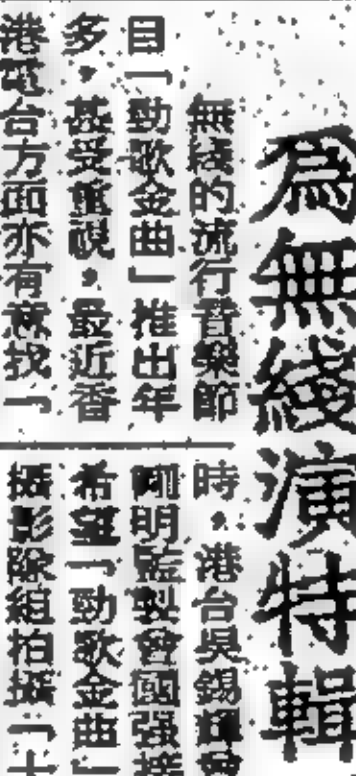 為無綫演特輯
無綫的流行音樂節
目「勁歌金曲」推出年
多，甚受重視，最近香
港電台方面亦有意找「
時，港台吳錫輝曾
明監製曾國强
希望「勁歌金曲」
攝影隊組拍攝「十